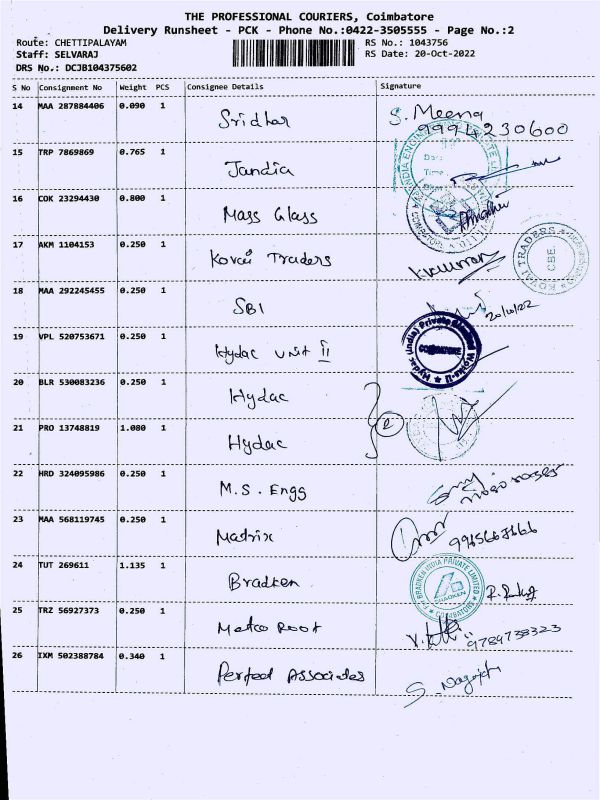 THE PROFESSIONAL COURIERS, Coimbatore
Delivery Runsheet - PCK - Phone No.:0422-3505555 - Page No.:2
Route: CHETTIPALAYAM RS No.: 1043756
Staff: SELVARAJ RS Date: 20-Oct-2022
DRS No.: DCJB104375602
S No Consignment No Weight PCS Consignee Details Signature
14 MAA 287884406 0.090 1 Sridhar S. Meena
9994230600
15 TRP 7869869 0.765 1 Jandia
16 COK 23294430 0.800 1 Mass Glass
17 AKM 1104153 0.250 1 Kovai Traders
KOVAI TRADERS CBE.
18 MAA 292245455 0.250 1 SBI 20/10/22
19 VPL 520753671 0.250 1 Hydac unit II
Hydac (India) Private Limited Works-II COIMBATORE
20 BLR 530083236 0.250 1 Hydac
21 PRO 13748819 1.080 1 Hydac
22 HRD 324095986 0.250 1 M.S. Engg
23 MAA 568119745 0.250 1 Matrix
24 TUT 269611 1.135 1 Bradken
BRADKEN INDIA PRIVATE LIMITED COIMBATORE
25 TRZ 56927373 0.250 1 Metco Roof 9789738323
26 IXM 502388784 0.340 1 Perfect Associates